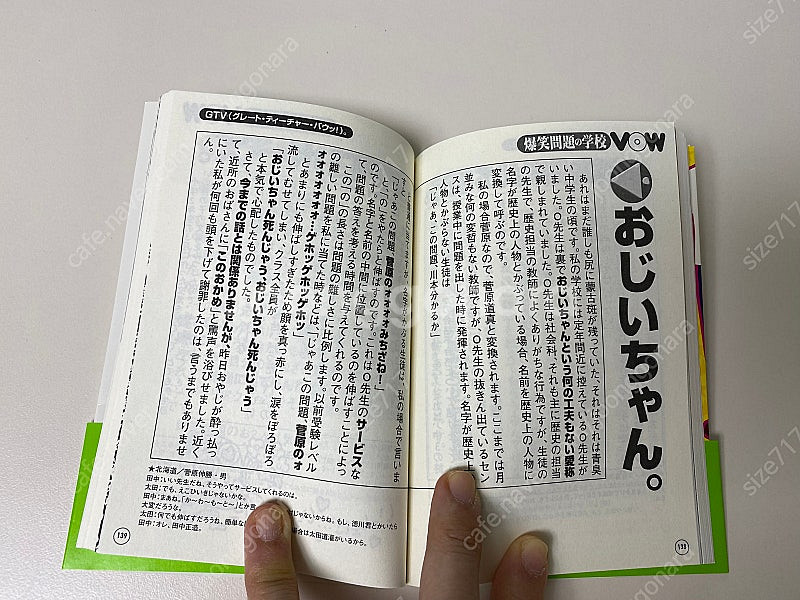 爆笑問題の学校VOW
おじいちゃん。
あれはまだ誰しも尻に蒙古斑が残っていた、それはそれは青臭
い中学生の頃です。私の学校には定年間近に控えているO先生が
いました。O先生は裏でおじいちゃんという何の工夫もない愛称
で親しまれていました。O先生は社会科、それも主に歴史の担当
の先生で、歴史担当の教師によくありがちな行為ですが、生徒の
名字が歴史上の人物とかぶっている場合、名前を歴史上の人物に
変換して呼ぶのです。
私の場合菅原なので、菅原道真と変換されます。ここまでは月
並みな何の変哲もない教師ですが、O先生の抜きん出ているセン
スは、授業中に問題を出した時に発揮されます。名字が歴史上
人物とかぶらない生徒は
「じゃあ、この問題、川本分かるか」
138
GTV(グレート・ティーチャー・バウッ!)。
生徒は、私の場合で言いま
すと、
「じゃあこの問題、菅原のォォォォみちざね!」
と、「の」をやたらと伸ばすのです。これはO先生のサービスな
のです。名字と名前の中間に位置しているのを伸ばすことによっ
て、問題の答えを考える時間を与えてくれるのです。
この「の」の長さは問題の難しさに比例します。以前受験レベル
の難しい問題を私に当てた時などは、「じゃあこの問題、菅原のォ
ォォォォォォ…ゲホッゲホッゲホッ」
とあまりにも伸ばしすぎたため顔を真っ赤にし、涙をぽろぽろ
流してむせてしまい、クラス全員が
「おじいちゃん死んじゃう、おじいちゃん死んじゃう」
と本気で心配したものでした。
さて、今までの話とは関係ありませんが、昨日おやじが酔っ払っ
て、近所のおばさんに「このおかめ」と罵声を浴びせました。近く
にいた私が何回も頭を下げて謝罪したのは言うまでもありませ
ん。
★北海道/菅原伸勝・男
田中:いい先生だね、そうやってサービスしてくれるのは。
太田:でも、えこひいきじゃないかな。
田中:まあね。「か〜わ〜も〜と〜」とか言
じゃないからね。もし、徳川君とかいたら
大変だろうな。
太田:何でも伸ばすだろうね。簡単な
場合は太田道灌がいるから。
田中:オレ、田中正造。
139
size717
cafe.naver.com
cafe.gonara
joonggonara